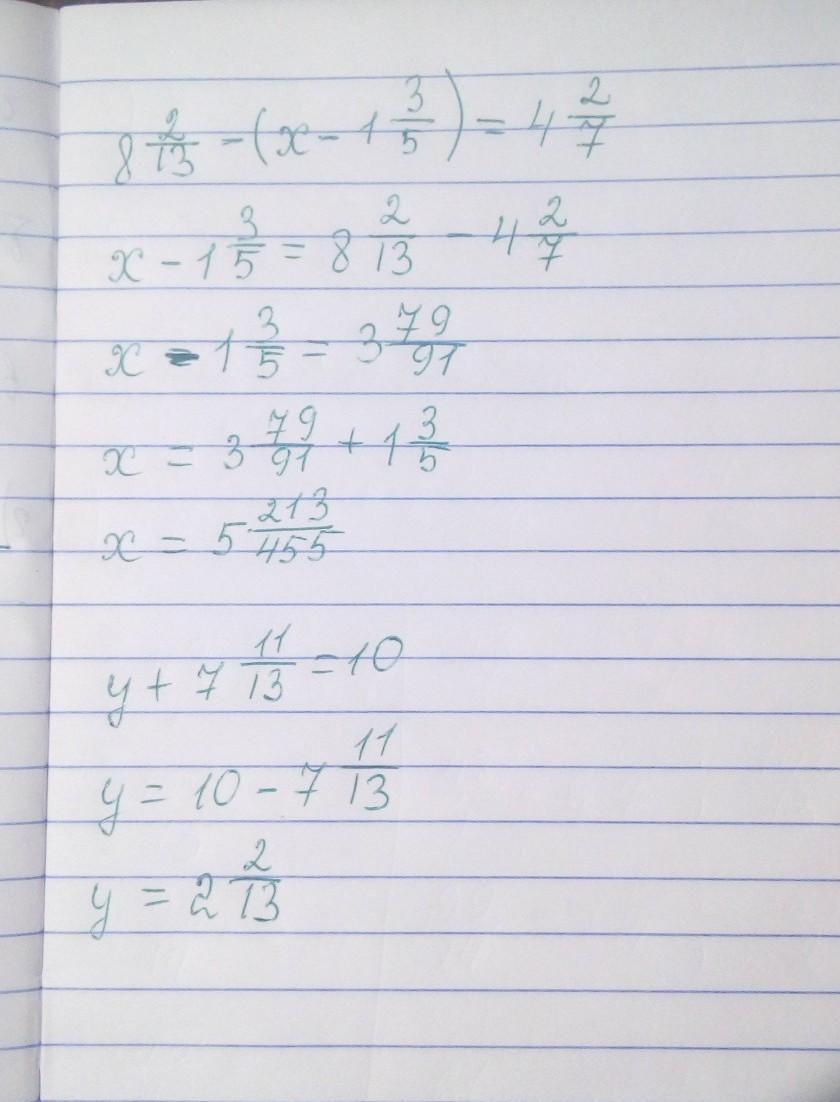 8 2/13 - (x - 1 3/5) = 4 2/7
x - 1 3/5 = 8 2/13 - 4 2/7
x - 1 3/5 = 3 79/91
x = 3 79/91 + 1 3/5
x = 5 213/455
y + 7 11/13 = 10
y = 10 - 7 11/13
y = 2 2/13